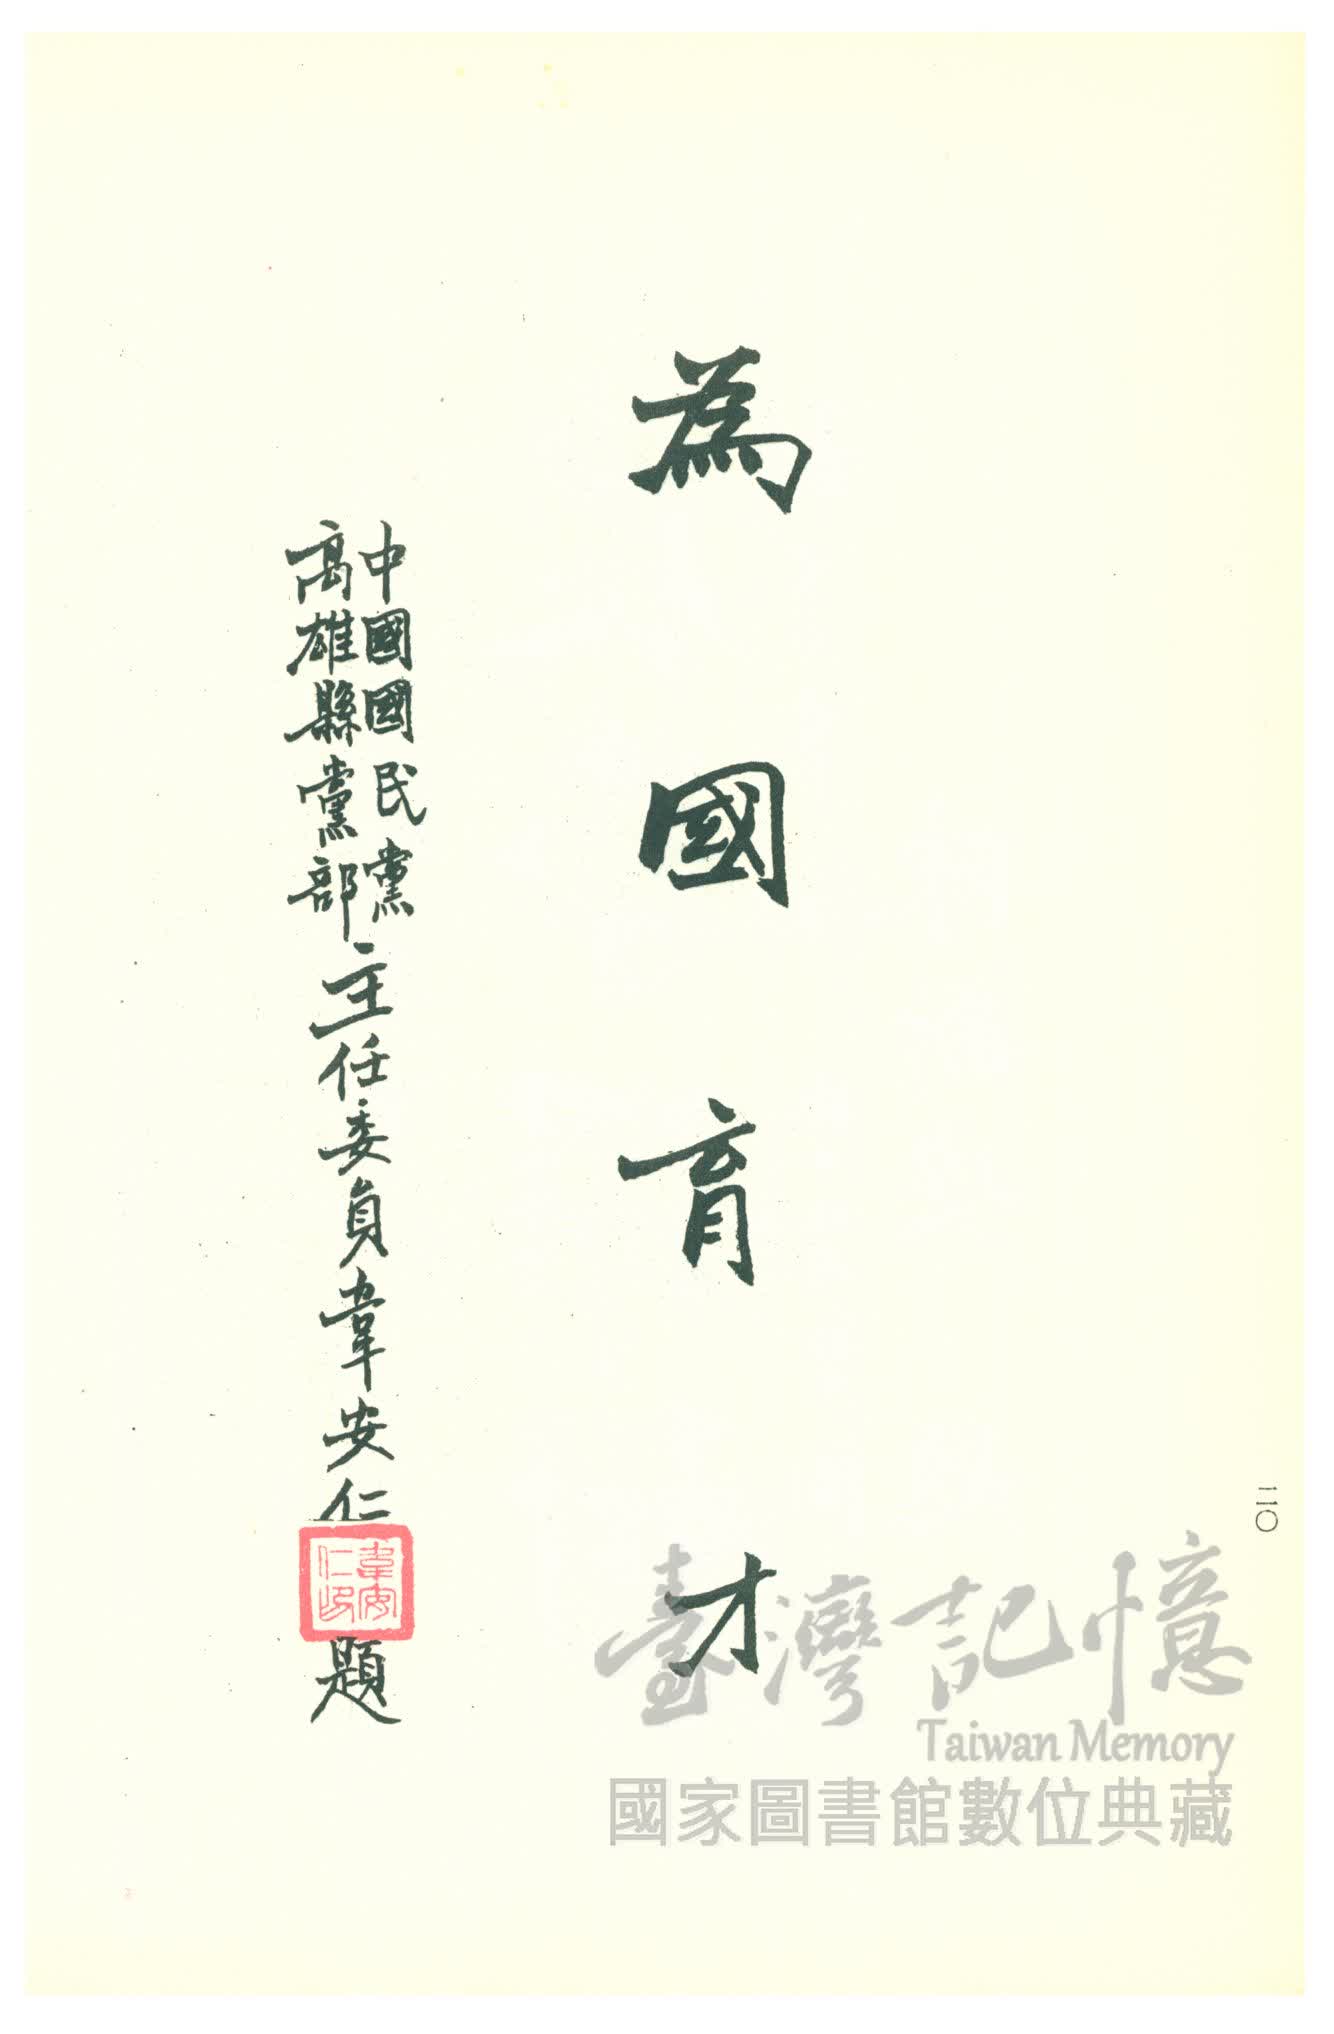 為國育才
中國國民黨
高雄縣黨部
主任委員韋安仁
韋安仁印
題
二〇
臺灣記憶
Taiwan Memory
國家圖書館數位典藏